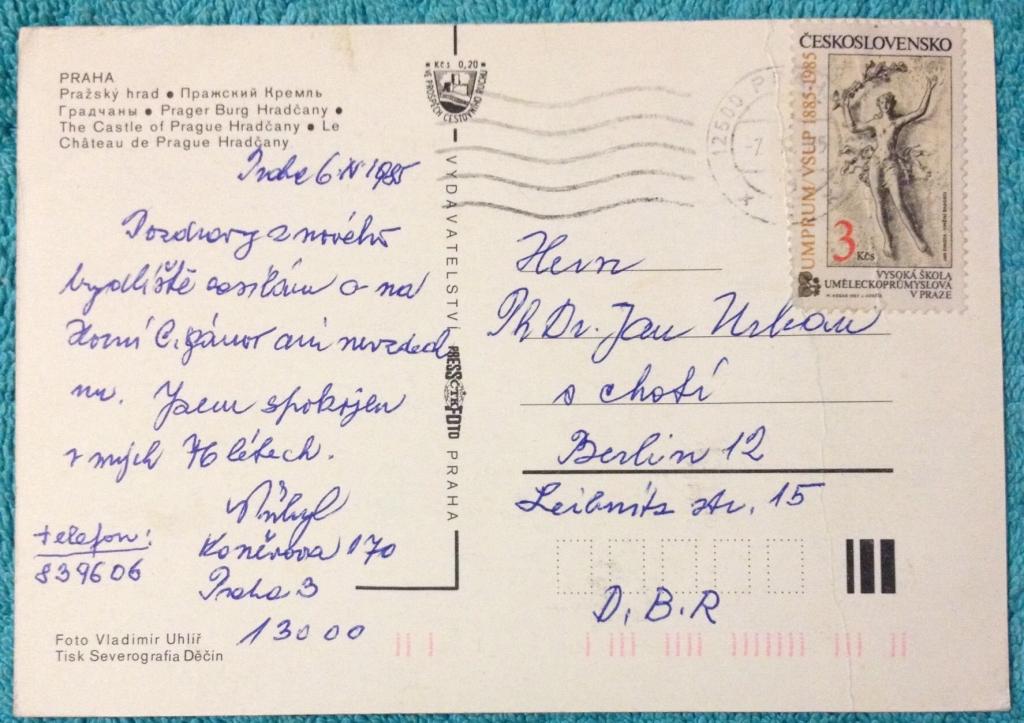 PRAHA
Pražský hrad • Пражский Кремль
Градчаны • Prager Burg Hradčany •
The Castle of Prague Hradčany • Le
Château de Prague Hradčany
Praha 6. 1985
Pozdravy z nového
bydliště zasílám a na
Horní
nu. Jsem spokojen
v mých 76 létech.
Přibyl
telefon:
839606
Koněvova 170
Praha 3
130 00
Foto Vladimir Uhlíř
Tisk Severografia Děčín
Kčs 0,20
VE PROSPĚCH CESTOVNÍHO RUCHU
VYDAVATELSTVÍ PRESSFOTO PRAHA
ČTK
12500 P
-7.
ČESKOSLOVENSKO
UMPRUM/VŠUP 1885-1985
3 Kčs
VYSOKÁ ŠKOLA
UMĚLECKOPRŮMYSLOVÁ
V PRAZE
Herrn
PhDr. Jan Urban
s chotí
Berlin 12
Leibnitz str. 15
D.B.R